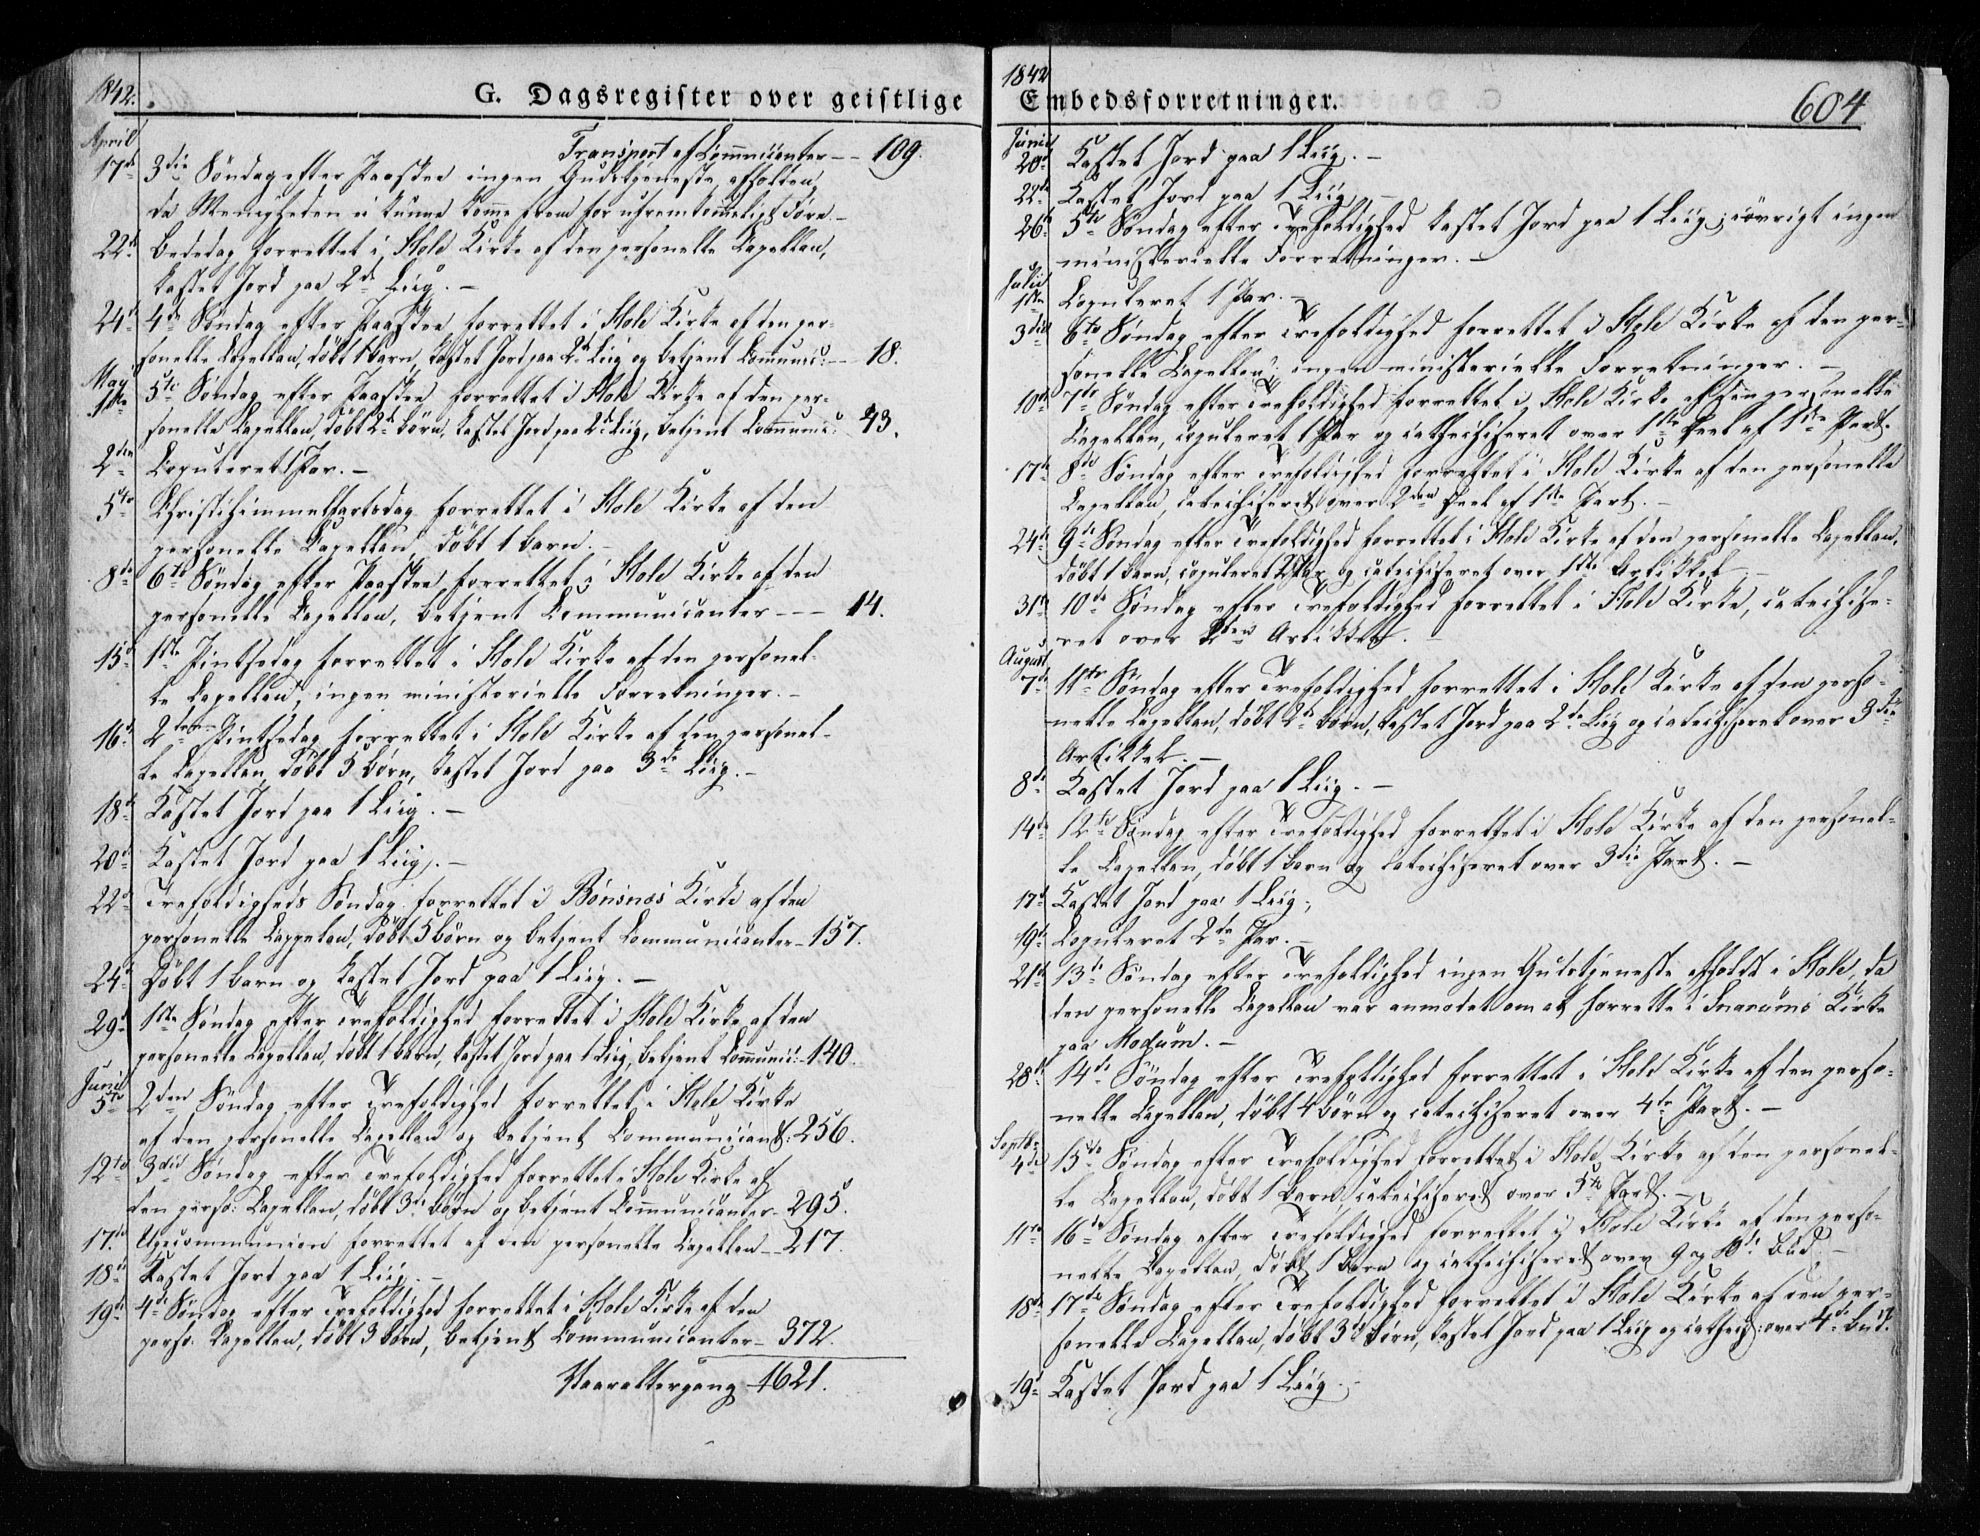 1842.
G. Dagsregister over geistlige
April
Transport af Communicanter - - 109.
17de 3die Søndag efter Paaske ingen Gudstjeneste afholden,
da Menigheden ei kunne komme frem for ufremkommeligt Føre. -
22de Bededag forrettet i Hole Kirke af den personelle Capellan,
kastet Jord paa 2de Liig. -
24de 4de Søndag efter Paaske forrettet i Hole Kirke af den per-
sonelle Capellan, døbt 1 barn, kastet Jord paa 2de Liig og betjent Communic: - 18.
May
1ste 5te Søndag efter Paaske forrettet i Hole Kirke af den per-
sonelle Capellan, døbt 2de børn, kastet Jord paa 2de Liig, betjent Communic: 43.
2den Copuleret 1 Par. -
5te Christihimmelfartsdag forrettet i Hole Kirke af den
personelle Capellan, døbt 1 barn. -
8de 6te Søndag efter Paaske forrettet i Hole Kirke af den
personelle Capellan, betjent Communicanter - - - 14.
15de 1ste Pintsedag forrettet i Hole Kirke af den personel-
le Capellan, ingen ministerielle Forretninger. -
16de 2den Pintsedag forrettet i Hole Kirke af den personel-
le Capellan, døbt 5 børn, kastet Jord paa 3de Liig. -
18de Kastet Jord paa 1 Liig. -
20de Kastet Jord paa 1 Liig. -
22de Trefoldigheds Søndag forrettet i Bønsnes Kirke af den
personelle Cappelan, døbt 5 børn og betjent Communicanter - 157.
24de Døbt 1 barn og kastet Jord paa 1 Liig. -
29de 1ste Søndag efter Trefoldighed forrettet i Hole Kirke af den
personelle Capellan, døbt 1 barn, kastet Jord paa 1 Liig, betjent Communic: - 140.
Junii
5te 2den Søndag efter Trefoldighed forrettet i Hole Kirke
af den personelle Capellan og betjent Communicant: 256.
12te 3die Søndag efter Trefoldighed forrettet i Hole Kirke af
den perso: Capellan, døbt 3de børn og betjent Communicanter - 295.
17de Ugecommunion forrettet af den personelle Capellan - - 217.
18de Kastet Jord paa 1 Liig. -
19de 4de Søndag efter Trefoldighed forrettet i Hole Kirke af den
perso. Capellan, døbt 3 børn, betjent Communicanter - 372.
Vaaraltergang - 1621.
1842
Embedsforretninger.
604
Junii
20de Kastet Jord paa 1 Liig. -
22de Kastet Jord paa 1 Liig. -
26de 5te Søndag efter Trefoldighed kastet Jord paa 1 Liig; iøvrigt ingen
ministerielle Forretninger. -
Julii
1ste Copuleret 1 Par. -
3die 6te Søndag efter Trefoldighed forrettet i Hole Kirke af den per-
sonelle Capellan, ingen ministerielle Forretninger. -
10de 7de Søndag efter Trefoldighed forrettet i Hole Kirke af den personelle
Capellan, copuleret 1 Par og catechiseret over 1ste Deel af 1ste Part.
17de 8de Søndag efter Trefoldighed forrettet i Hole Kirke af den personelle
Capellan, catechiseret over 2den Deel af 1ste Part. -
24de 9de Søndag efter Trefoldighed forrettet i Hole Kirke af den personelle Capellan,
døbt 1 barn, copuleret 2 Par og catechiseret over 1ste Artikkel -
31te 10de Søndag efter Trefoldighed forrettet i Hole Kirke, catechise-
ret over 2den Artikkel. -
August
7de 11te Søndag efter Trefoldighed forrettet i Hole Kirke af den perso-
nelle Capellan, døbt 2de børn, kastet Jord paa 2de Liig og catechiseret over 3die
Artikkel. -
8de Kastet Jord paa 1 Liig. -
14de 12te Søndag efter Trefoldighed forrettet i Hole Kirke af den personel-
le Capellan, døbt 1 barn og catechiseret over 3die Part. -
17de Kastet Jord paa 1 Liig;
19de Copuleret 2de Par. -
21de 13de Søndag efter Trefoldighed ingen Gudstjeneste afholdt i Hole, da
den personelle Capellan var anmodet om at forrette i Snarums Kirke
paa Modum. -
28de 14de Søndag efter Trefoldighed forrettet i Hole Kirke af den perso-
nelle Capellan, døbt 4 børn og catechiseret over 4de Part. -
Septbr
4de 15de Søndag efter Trefoldighed forrettet i Hole Kirke af den personel-
le Capellan, døbt 1 barn, catechiseret over 5te Part. -
11te 16de Søndag efter Trefoldighed forrettet i Hole Kirke af den perso-
nelle Capellan, døbt 1 barn og catechiseret over 9 og 10de Bud -
18de 17de Søndag efter Trefoldighed forrettet i Hole Kirke af den per-
sonelle Capellan, døbt 3de børn, kastet Jord paa 1 Liig og catechis: over 4de Bud.
19de Kastet Jord paa 1 Liig. -